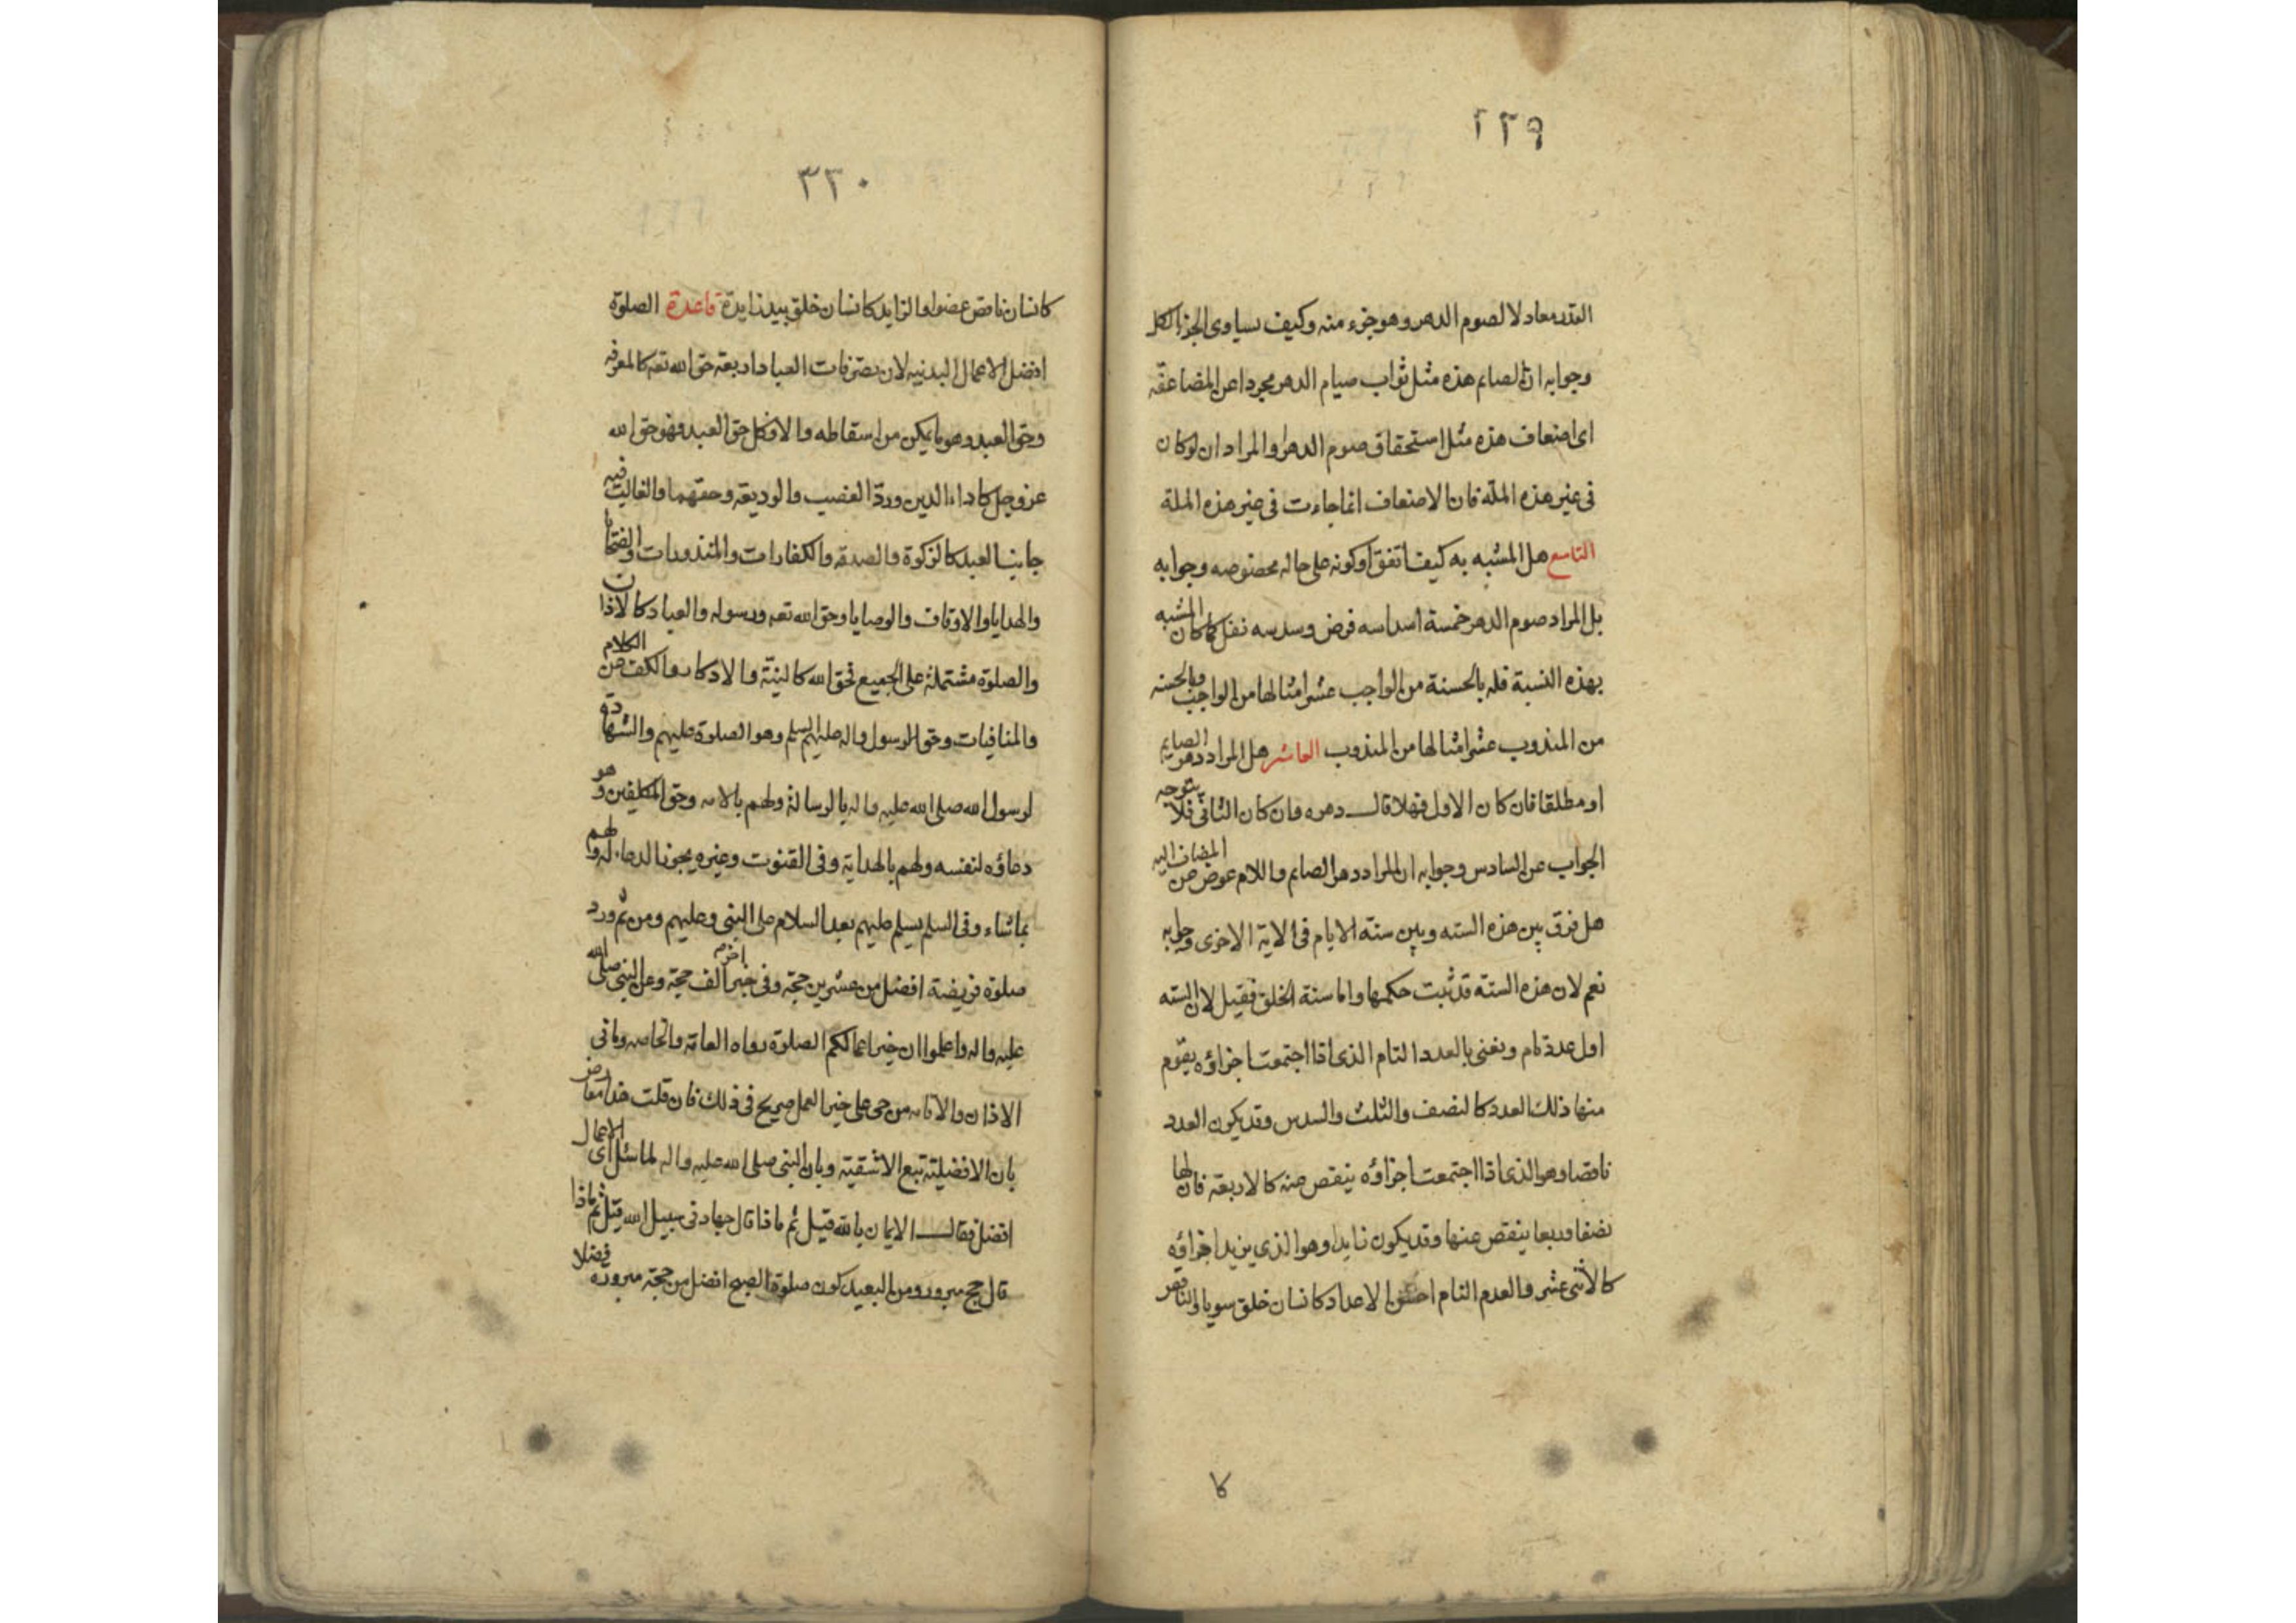 ٢٢٩
القدر معادلا لصوم الدهر وهو جزء منه وكيف يساوى الجزء الكل
وجوابه ان الصايم هذه مثل ثواب صيام الدهر مجردا عن المضاعفة
اى اضعاف هذه مثل استحقاق صوم الدهر والمراد ان لو كان
فى غير هذه الملة فان الاضعاف انما جاءت فى هذه الملة
التاسع هل المشبه به كيف اتفق او كونه على حاله مخصوصه وجوابه
بل المراد صوم الدهر خمسة اسداسه فرض وسدسه نفل كما كان المشبه
بهذه النسبة فله بالحسنة من الواجب عشر امثالها من الواجب وبالحسنه
من المندوب عشر امثالها من المندوب العاشر هل المراد دهر الصايم
او مطلقا فان كان الاول فهلا قال دهره وان كان الثانى فلا يتوجه
الجواب عن السادس وجوابه ان المراد دهر الصايم واللام عوض عن المضاف اليه
هل فرق بين هذه السته وبين ستة الايام فى الاية الاخرى وجوابه
نعم لان هذه الستة قد ثبت حكمها واما ستة الخلق فقيل لان السته
اول عدد تام ونعنى بالعدد التام الذى اذا اجتمعت اجزاؤه يقوم
منها ذلك العدد كالنصف والثلث والسدس وقد يكون العدد
ناقصا وهو الذى اذا اجتمعت اجزاؤه ينقص عنه كالاربعة فان لها
نصفا وربعا ينقص عنها وقد يكون زايدا وهو الذى يزيد اجزاؤه
كالاثنى عشر والعدم التام احسن الاعداد كانسان خلق سويا والناقص
كا
٣٣٠
كانسان ناقص عضوا والزايد كانسان خلق بيد زايدة قاعدة الصلوة
افضل الاعمال البدنيه لان تصرفات العباد اربعة حق الله تعه كالمعرفه
وحق العبد وهو ما يمكن من اسقاطه والا فكل حق العبد فهو حق الله
عز وجل كاداء الدين ورد الغصب والوديعة وحقهما والغالب فيه
جانب العبد كالزكوة والصدقه والكفارات والمنذورات والضحايا
والهدايا والاوقاف والوصايا وحق الله تعه ورسوله والعباد كالاذان
والصلوة مشتملة على الجميع فحق الله كالنية والاذكار والكف عن الكلام
والمنافيات وحق الرسول واله عليهم السلم وهو الصلوة عليهم والشهادة
لرسول الله صلى الله عليه واله بالرسالة ولهم بالامامه وحق المكلفين وهو
دعاؤه لنفسه ولهم بالهداية وفى القنوت وغيره يجوز الدعاء له ولهم
بما شاء وفى السلم يسلم عليهم بعد السلام على النبى وعليهم ومن ثم ورد
صلوة فريضة افضل من عشرين حجة وفى خبر اخر الف حجة وعن النبى صلى الله
عليه واله واعلموا ان خير اعمالكم الصلوة رواه العامة والخاصه وما فى
الاذان والاقامه من حى على خير العمل صريح فى ذلك فان قلت هذا معارض
بان الافضلية تتبع الاشقية وبان النبى صلى الله عليه واله لما سئل اى الاعمال
افضل فقال الايمان بالله قيل ثم ماذا قال جهاد فى سبيل الله قيل ثم ماذا
قال حج مبرور ومن البعيد كون صلوة الصبح افضل من حجة مبرورة فضلا